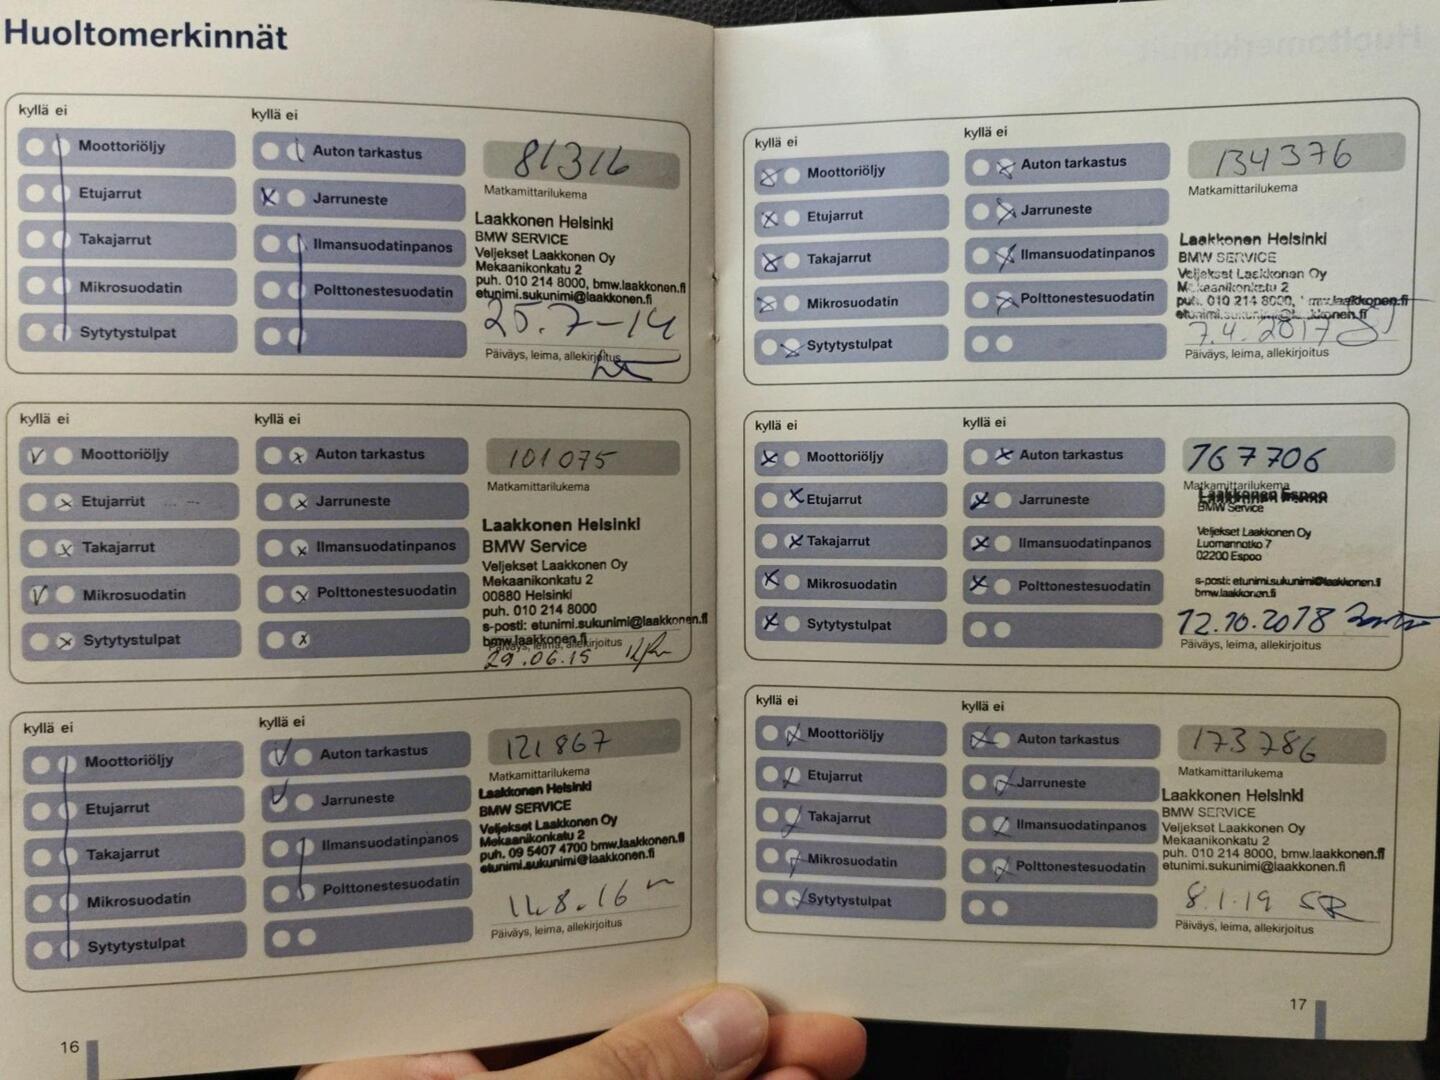 Huoltomerkinnät
kyllä ei
Moottoriöljy
Etujarrut
Takajarrut
Mikrosuodatin
Sytytystulpat
kyllä ei
Auton tarkastus
Jarruneste
Ilmansuodatinpanos
Polttonestesuodatin
81316
Matkamittarilukema
Laakkonen Helsinki
BMW SERVICE
Veljekset Laakkonen Oy
Mekaanikonkatu 2
puh. 010 214 8000, bmw.laakkonen.fi
etunimi.sukunimi@laakkonen.fi
25.7-14
Päiväys, leima, allekirjoitus
kyllä ei
Moottoriöljy
Etujarrut
Takajarrut
Mikrosuodatin
Sytytystulpat
kyllä ei
Auton tarkastus
Jarruneste
Ilmansuodatinpanos
Polttonestesuodatin
101075
Matkamittarilukema
Laakkonen Helsinki
BMW Service
Veljekset Laakkonen Oy
Mekaanikonkatu 2
00880 Helsinki
puh. 010 214 8000
s-posti: etunimi.sukunimi@laakkonen.fi
bmw.laakkonen.fi
Päiväys, leima, allekirjoitus
29.06.15
kyllä ei
Moottoriöljy
Etujarrut
Takajarrut
Mikrosuodatin
Sytytystulpat
kyllä ei
Auton tarkastus
Jarruneste
Ilmansuodatinpanos
Polttonestesuodatin
121867
Matkamittarilukema
Laakkonen Helsinki
BMW SERVICE
Veljekset Laakkonen Oy
Mekaanikonkatu 2
puh. 09 5407 4700 bmw.laakkonen.fi
etunimi.sukunimi@laakkonen.fi
Päiväys, leima, allekirjoitus
16
kyllä ei
Moottoriöljy
Etujarrut
Takajarrut
Mikrosuodatin
Sytytystulpat
kyllä ei
Auton tarkastus
Jarruneste
Ilmansuodatinpanos
Polttonestesuodatin
134376
Matkamittarilukema
Laakkonen Helsinki
BMW SERVICE
Veljekset Laakkonen Oy
Mekaanikonkatu 2
puh. 010 214 8000, bmw.laakkonen.fi
etunimi.sukunimi@laakkonen.fi
7.4.2017
Päiväys, leima, allekirjoitus
kyllä ei
Moottoriöljy
Etujarrut
Takajarrut
Mikrosuodatin
Sytytystulpat
kyllä ei
Auton tarkastus
Jarruneste
Ilmansuodatinpanos
Polttonestesuodatin
167706
Matkamittarilukema
Laakkonen Espoo
BMW Service
Veljekset Laakkonen Oy
Luomannotko 7
02200 Espoo
s-posti: etunimi.sukunimi@laakkonen.fi
bmw.laakkonen.fi
12.10.2018
Päiväys, leima, allekirjoitus
kyllä ei
Moottoriöljy
Etujarrut
Takajarrut
Mikrosuodatin
Sytytystulpat
kyllä ei
Auton tarkastus
Jarruneste
Ilmansuodatinpanos
Polttonestesuodatin
173786
Matkamittarilukema
Laakkonen Helsinki
BMW SERVICE
Veljekset Laakkonen Oy
Mekaanikonkatu 2
puh. 010 214 8000, bmw.laakkonen.fi
etunimi.sukunimi@laakkonen.fi
8.1.19 SR
Päiväys, leima, allekirjoitus
17